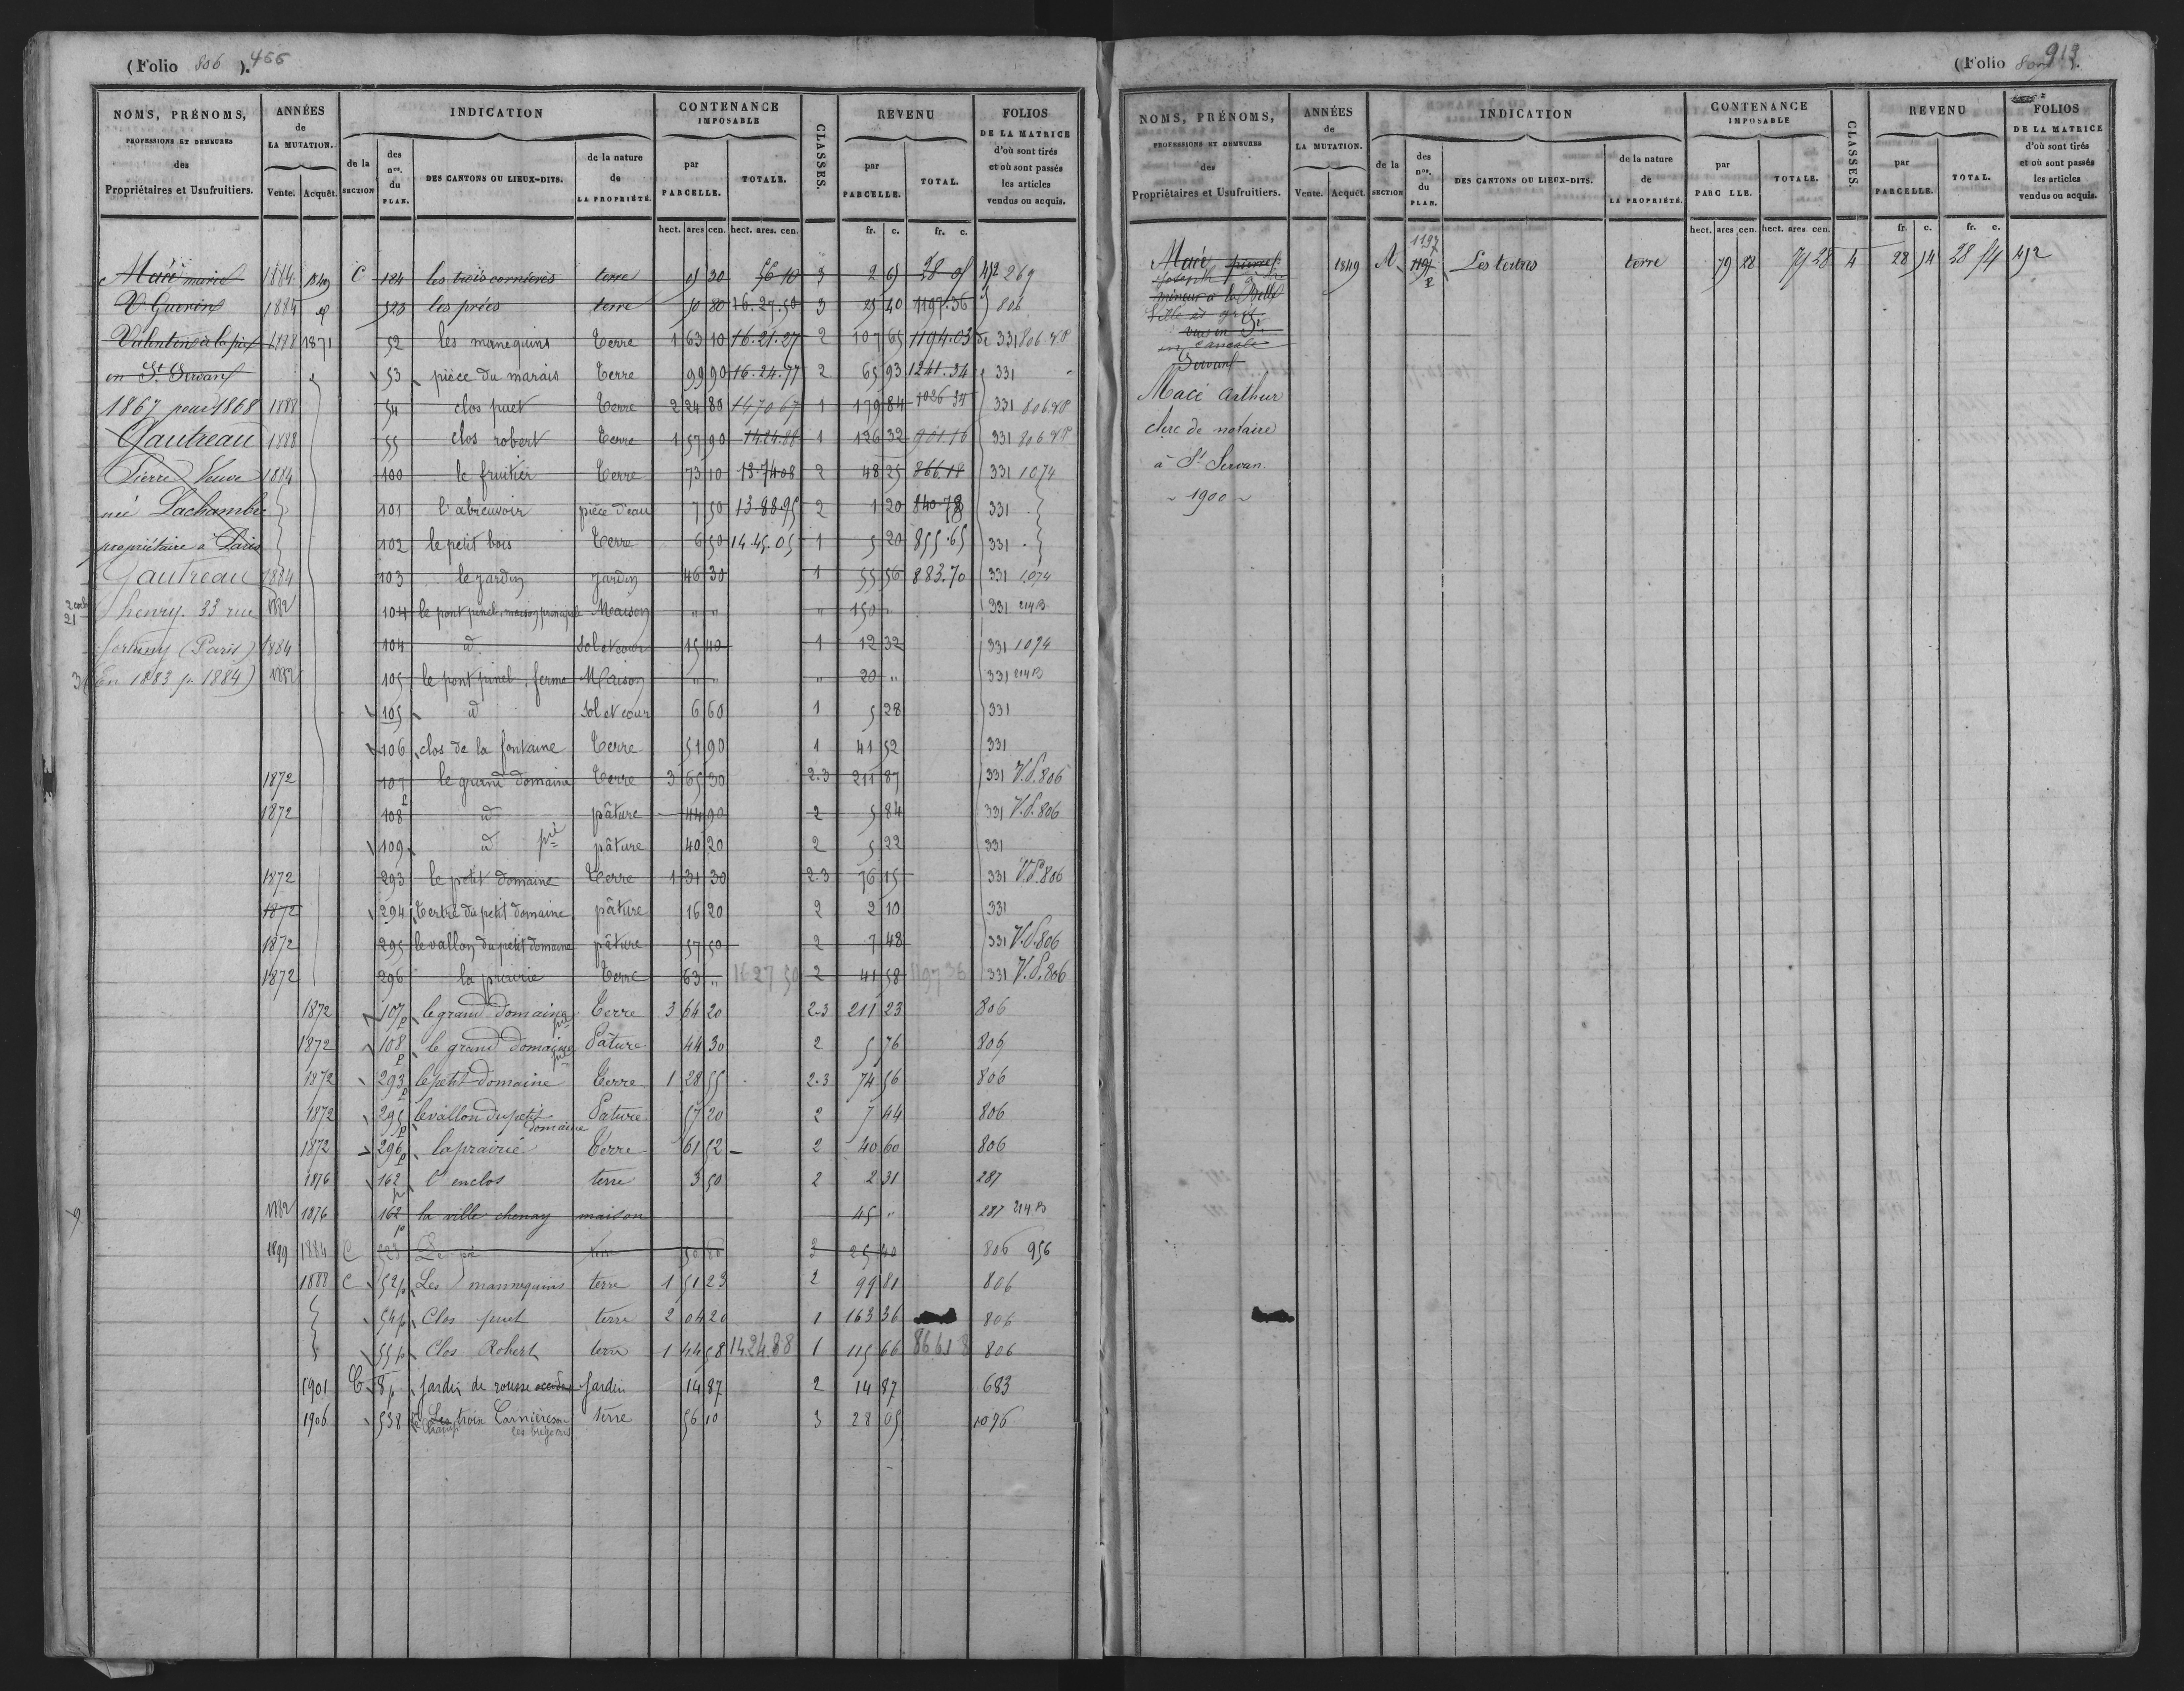 (Folio 806 ). 466
NOMS, PRÉNOMS, PROFESSIONS ET DEMEURES des Propriétaires et Usufruitiers.
ANNÉES de LA MUTATION. Vente. Acquêt.
INDICATION de la SECTION des nos. du PLAN. DES CANTONS OU LIEUX-DITS. de la nature de LA PROPRIÉTÉ.
CONTENANCE IMPOSABLE par PARCELLE. TOTALE.
CLASSES.
REVENU par PARCELLE. TOTAL.
FOLIOS DE LA MATRICE d'où sont tirés et où sont passés les articles vendus ou acquis.
hect. ares cen. hect. ares. cen. fr. c. fr. c.
Macé marie 1884 1849 C 124 les trois cornieres terre 05 30 56 10 3 2 65 28 05 452 269
V Guerin 1884 523 les prées terre 50 80 16.27.50 3 25 40 1197.36 806
Valentin 1888 1871 52 les manequins Terre 1 63 10 16.21.27 2 107 65 1194.03 de 331 806
en St. Servan 53 pièce du marais Terre 99 90 16.24.77 2 65 93 1241.34 331
1867 pour 1868 1888 54 clos puet Terre 2 24 80 14 70 67 1 179 84 1026 34 331 806
Gautreau 1888 55 clos robert Terre 1 57 90 14.24.88 1 126 32 901.16 331 806
Pierre Veuve 1884 100 le fruitier Terre 73 10 13.74 08 2 48 25 866.18 331 1074
née Lachambre 101 l'abreuvoir pièce d'eau 7 50 13.88.95 2 1 20 840.78 331
propriétaire à Paris 102 le petit bois Terre 6 50 14.45.05 1 5 20 855.65 331
Gautreau 1884 103 le jardin jardin 46 30 1 55 56 883.70 331 1074
henry. 33 rue 1882 104 le pont pinel, maison principale Maison " " " 150 " 331 214 B
Fortuny (Paris) 1884 104 id sol et cour 15 40 1 12 32 331 1074
En 1883 pr 1884) 1882 105 le pont pinel, ferme Maison " " " 20 " 331 214 B
105 id sol et cour 6 60 1 5 28 331
106 clos de la fontaine Terre 51 90 1 41 52 331
1872 107 le grand domaine Terre 3 65 30 2.3 211 87 331 V.S. 806
1872 108 id pâture 44 90 2 5 84 331 V.S. 806
109 id pâture 40 20 2 5 22 331
1872 293 le petit domaine Terre 1 31 30 2.3 76 15 331 V.S. 806
1872 294 tertre du petit domaine pâture 16 20 2 2 10 331
1872 295 le vallon du petit domaine pâture 57 50 2 7 48 331 V.S. 806
1872 296 la prairie Terre 63 " 16 27 50 2 41 58 1197 36 331 V.S. 806
1872 107 p le grand domaine Terre 3 64 20 2.3 211 23 806
1872 108 p le grand domaine Pâture 44 30 2 5 76 806
1872 293 p le petit domaine Terre 1 28 55 2.3 74 56 806
1872 295 p le vallon du petit domaine Pature 57 20 2 7 44 806
1872 296 p la prairie Terre 61 52 2 40 60 806
1876 162 p l'enclos terre 3 50 2 2 31 287
1882 1876 162 p la ville chenay maison 45 " 287 214 B
1899 1884 C 523 Le pré terre 50 80 3 25 40 806 956
1888 C 52 p Les mannequins terre 1 51 23 2 99 81 806
54 p Clos puet terre 2 04 20 1 163 36 806
55 p Clos Robert terre 1 44 58 14 24 88 1 115 66 866 18 806
1901 C 8 p Jardin de rousse Jardin 14 87 2 14 87 683
1906 538 Les trois Carnières ou Champ les bregeons terre 56 10 3 28 05 1076
(Folio 807 ). 913
NOMS, PRÉNOMS, PROFESSIONS ET DEMEURES des Propriétaires et Usufruitiers.
ANNÉES de LA MUTATION. Vente. Acquêt.
INDICATION de la SECTION des nos. du PLAN. DES CANTONS OU LIEUX-DITS. de la nature de LA PROPRIÉTÉ.
CONTENANCE IMPOSABLE par PARC LLE. TOTALE.
CLASSES.
REVENU par PARCELLE. TOTAL.
FOLIOS DE LA MATRICE d'où sont tirés et où sont passés les articles vendus ou acquis.
hect. ares cen. hect. ares. cen. fr. c. fr. c.
Macé pierre 1849 A 1197 1191 p Les tertres terre 79 28 79 28 4 28 54 28 54 452
Joseph
mineur à la Belle
fille
en cancale
Servan
Macé Arthur
clerc de notaire
à St Servan
1900